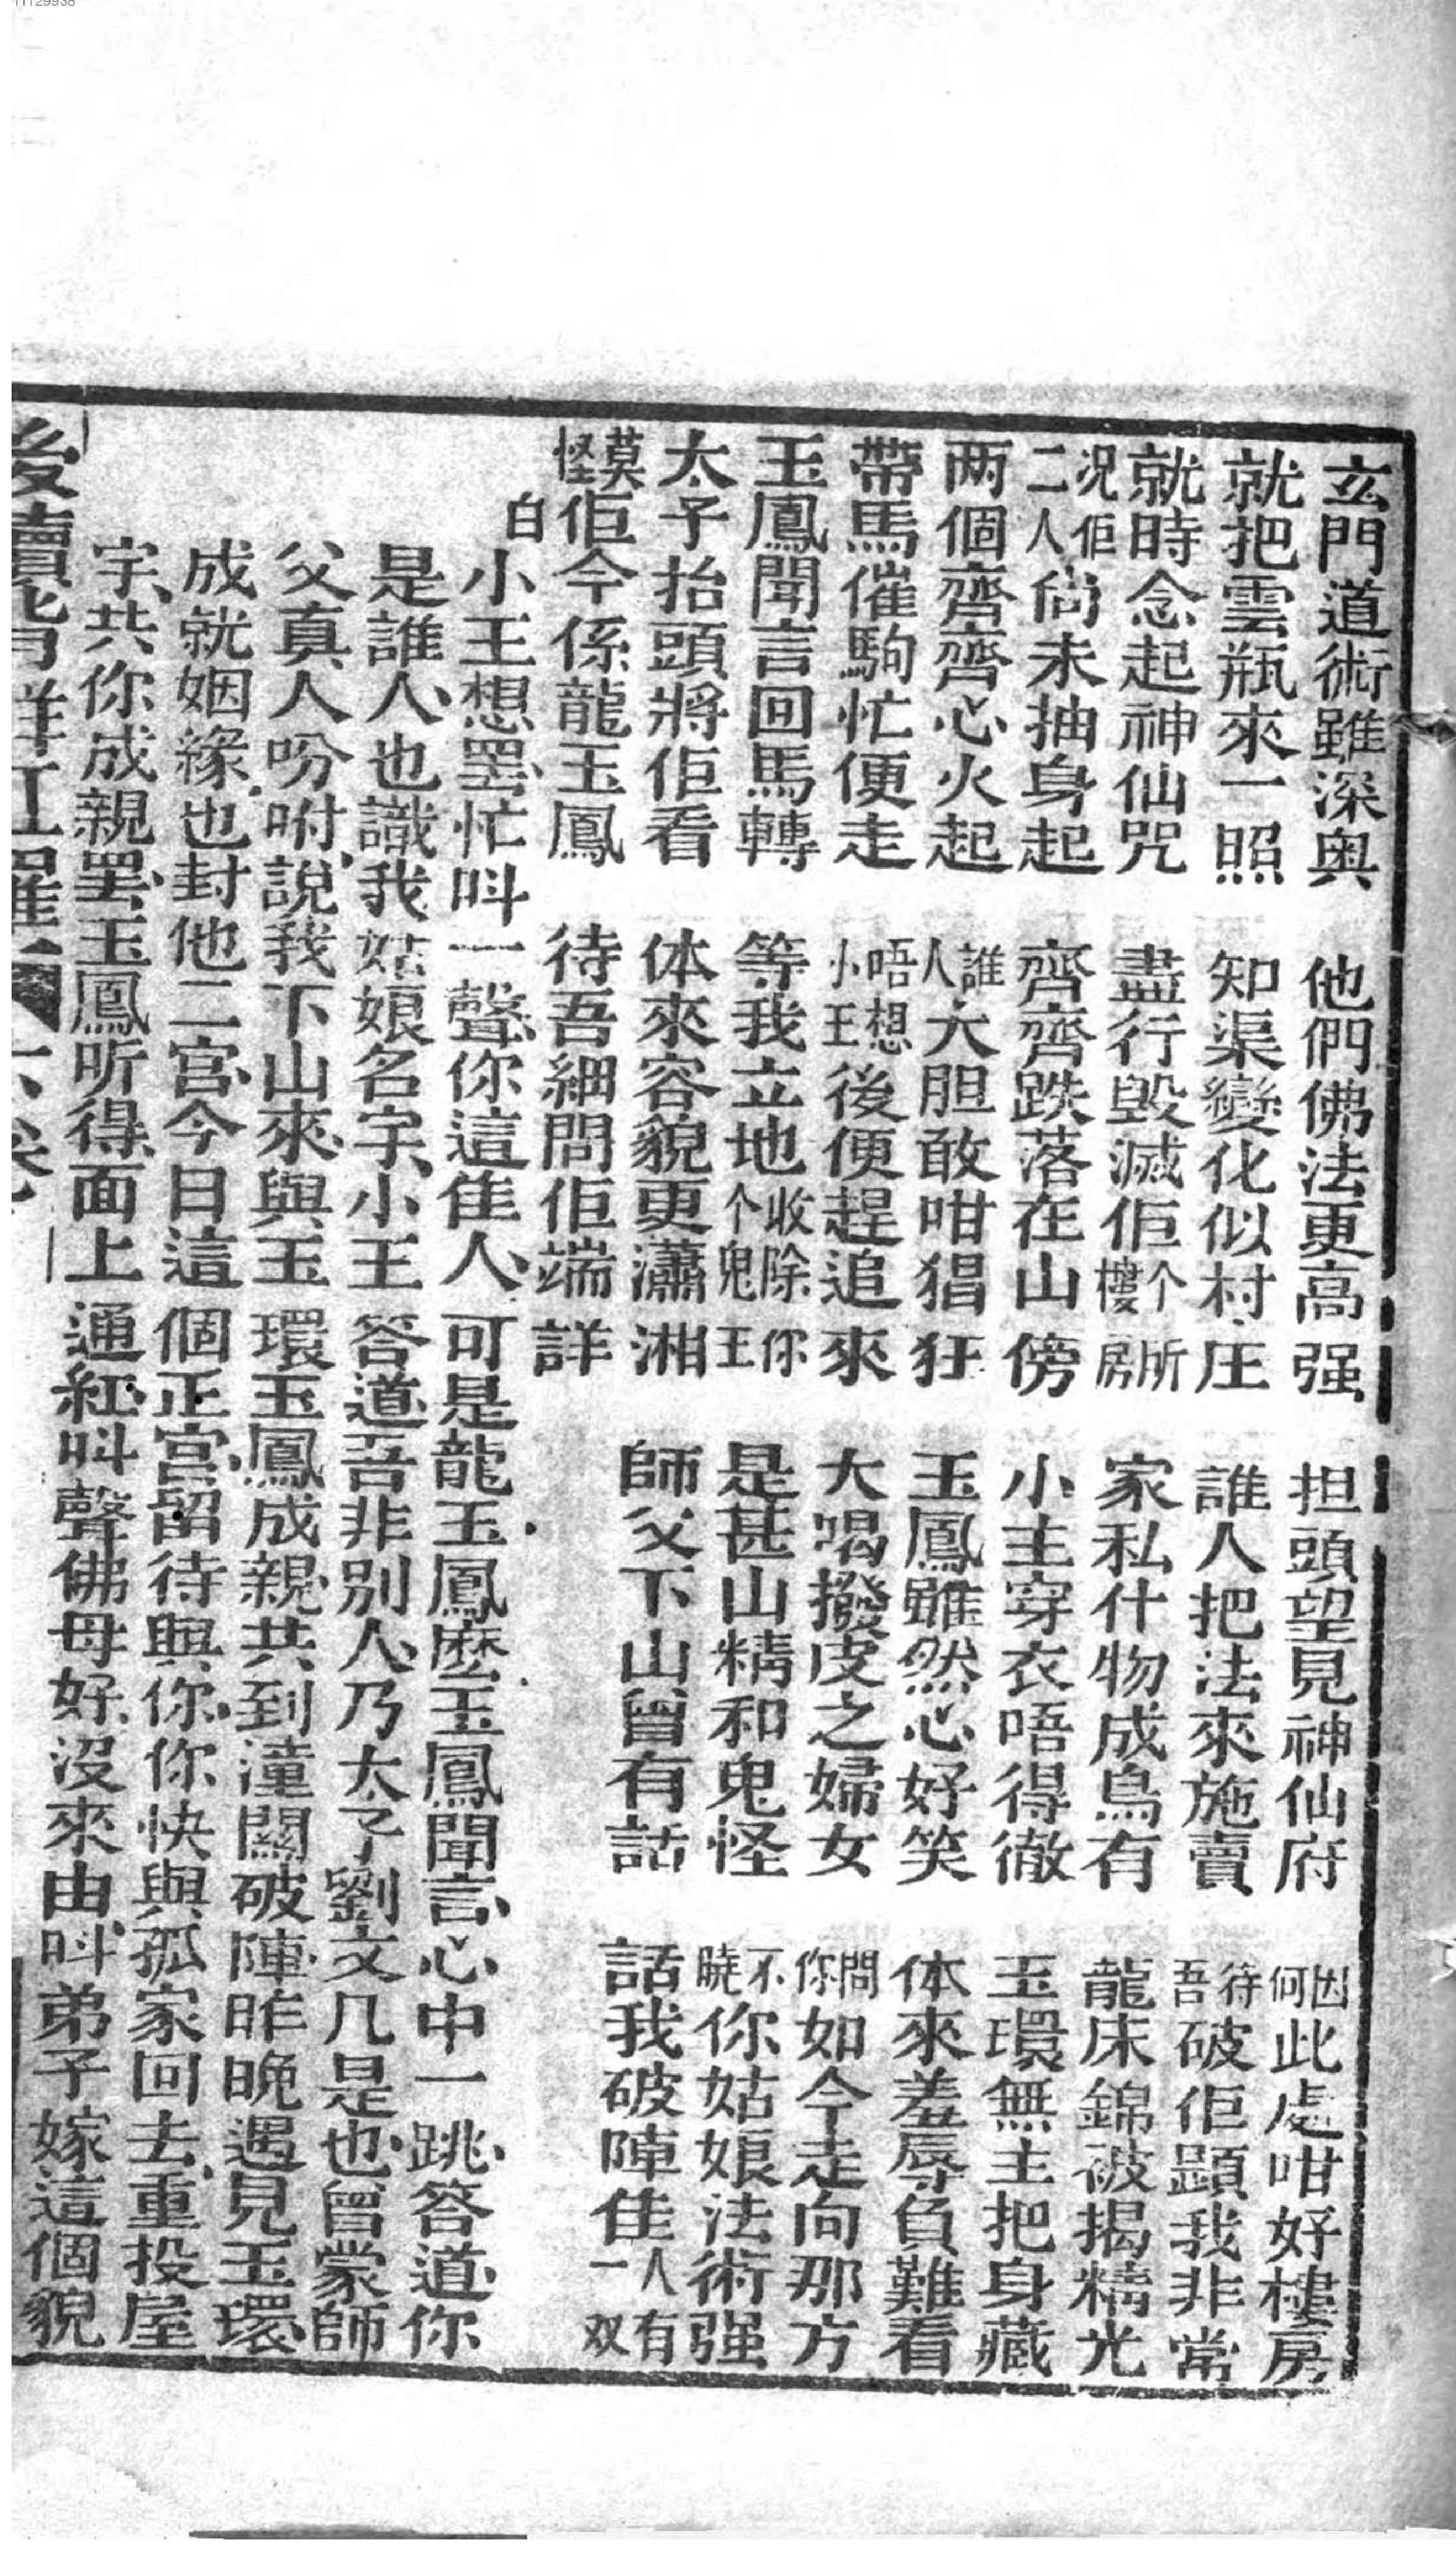 11129938
玄門道術雖深奥　他們佛法更高强　担頭望見神仙府　因何此處咁好樓房
就把雲瓶來一照　知渠變化似村庄　誰人把法來施賣　待吾破佢顕我非常
就時念起神仙咒　盡行毀滅佢个所樓房　家私什物成烏有　龍床錦被揭精光
况佢二人尚未抽身起　齊齊跌落在山傍　小主穿衣唔得徹　玉環無主把身藏
两個齊齊心火起　誰人大胆敢咁猖狂　玉鳳雖然心好笑　体來羞辱負難看
帶馬催駒忙便走　唔想小王後便趕追來　大喝撥皮之婦女　問你如今走向那方
玉鳳聞言回馬轉　等我立地收除你个鬼王　是甚山精和鬼怪　不曉你姑娘法術强
太子抬頭將佢看　体來容貌更瀟湘　師父下山曾有話　話我破陣佳人有一双
莫怪佢今係龍玉鳳　待吾細問佢端詳
白
小王想罢忙呌一聲你這佳人可是龍玉鳳麽玉鳳聞言心中一跳答道你
是誰人也識我姑娘名字小王答道吾非別人乃太子劉文几是也曾蒙師
父真人吩咐說我下山來與玉環玉鳳成親共到潼關破陣昨晚遇見玉環
成就姻緣也封他二宮今日這個正宮留待與你你快與孤家回去重投屋
宇共你成親罢玉鳳昕得面上通紅呌聲佛母好沒來由呌弟子嫁這個貌